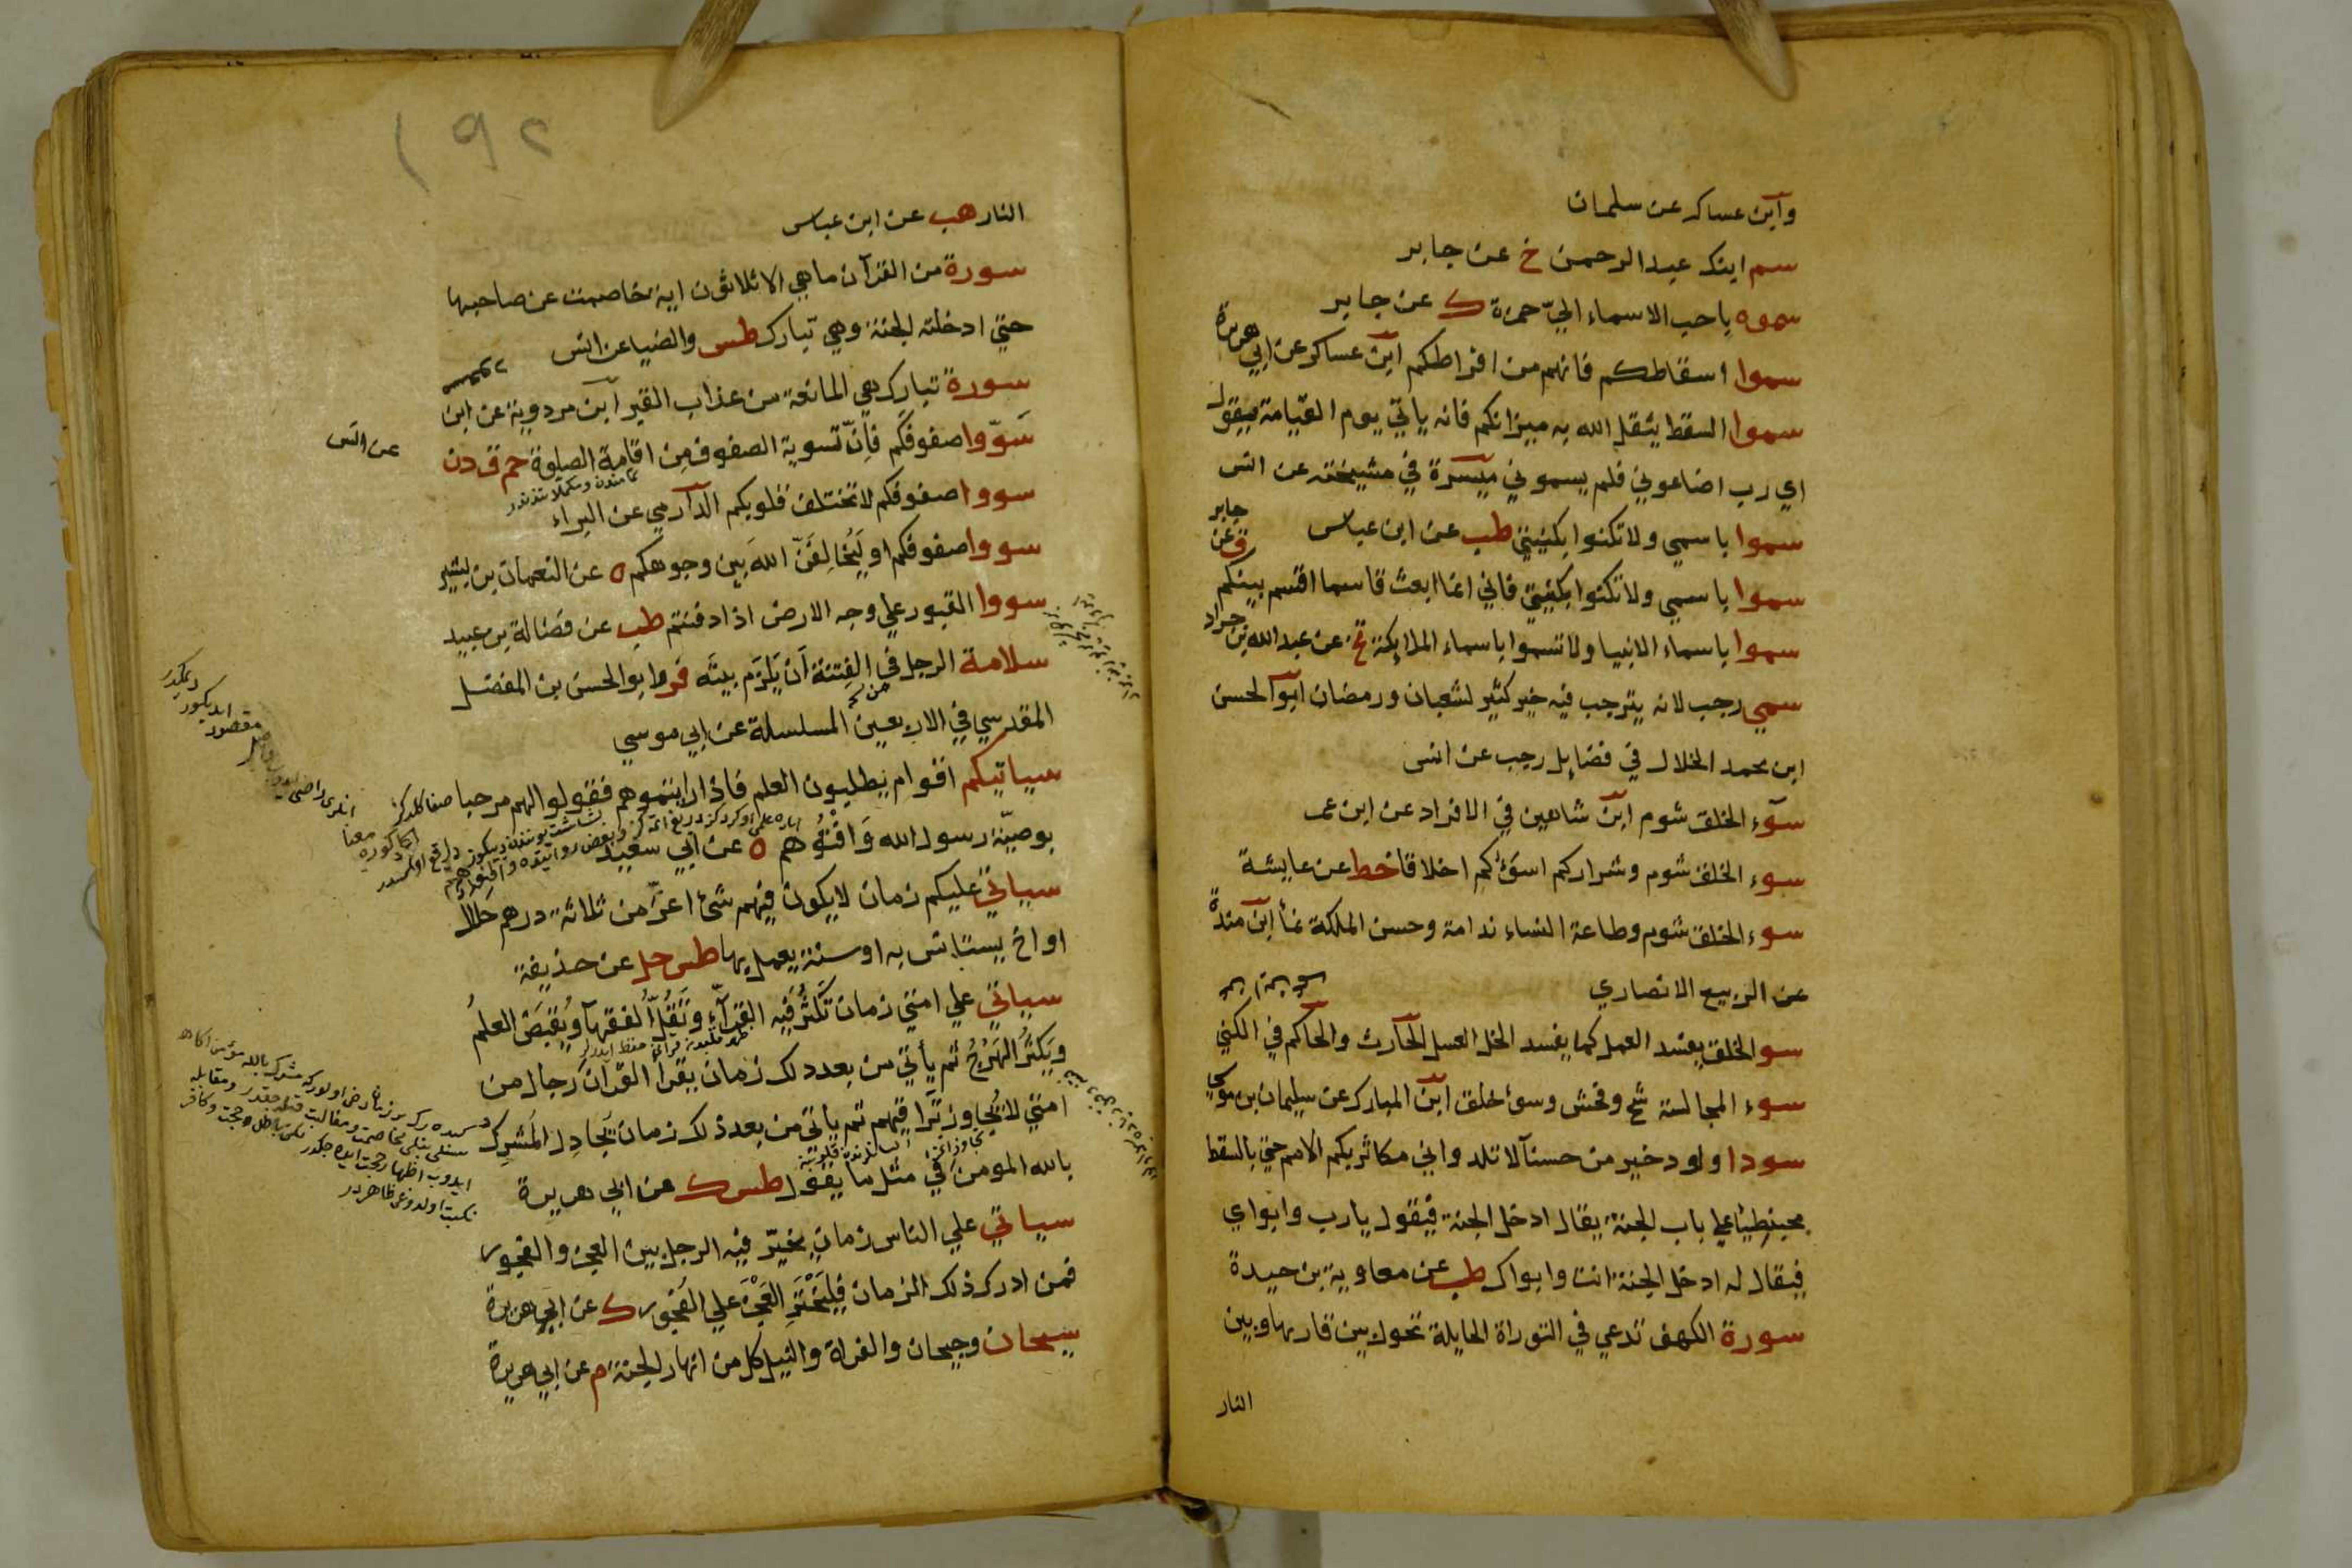 وابن عساكر عن سلمان
سم ابنك عبد الرحمن خ عن جابر
سموه باحب الاسماء اليّ حمزة ك عن جابر
سموا اسقاطكم فانهم من افراطكم ابن عساكر عن ابي هريرة
سموا السقط يثقل الله به ميزانكم فانه ياتي يوم القيامة فيقول
اي رب اضاعوني فلم يسموني ميسرة في مشيخته عن انس
سموا باسمي ولا تكنوا بكنيتي طب عن ابن عباس
سموا باسمي ولا تكنوا بكنيتي فاني انما ابعث قاسما اقسم بينكم ق عن جابر
سموا باسماء الانبيا ولا تسموا باسماء الملايكة تخ عن عبد الله بن جراد
سمي رجب لانه يترجب فيه خير كثير لشعبان ورمضان ابو الحسن
ابن محمد الخلال في فضايل رجب عن انس
سوء الخلق شوم ابن شاهين في الافراد عن ابن عمر
سوء الخلق شوم وشراركم اسوئكم اخلاقا خط عن عايشة
سوء الخلق شوم وطاعة النساء ندامة وحسن الملكة نمأ ابن مندة
عن الربيع الانصاري
سو الخلق يفسد العمل كما يفسد الخل العسل الحارث والحاكم في الكني
سوء المجالسة شح وفحش وسوء خلق ابن المبارك عن سليمان بن موسي
سودا ولود خير من حسنآ لا تلد واني مكاثر بكم الامم حتي بالسقط
محبنطيئا علي باب الجنة يقال ادخل الجنة فيقول يا رب وابواي
فيقال له ادخل الجنة انت وابواك طب عن معاوية بن حيدة
سورة الكهف تدعي في التوراة الحايلة تحول بين قاريها وبين
النار
١٩٢
النار هب عن ابن عباس
سورة من القرآن ما هي الا ثلاثون اية خاصمت عن صاحبها
حتي ادخلته الجنة وهي تبارك طس والضيا عن انس
سورة تبارك هي المانعة من عذاب القبر ابن مردوية عن ابن
سَوّوا صفوفكم فانّ تسوية الصفوف مِن اقامة الصلوة حم ق د ن
عن انس
سووا صفوفكم لا تختلف قلوبكم الدارمي عن البراء
سووا صفوفكم او ليُخالِفَنّ اللهَ بين وجوهكم ه عن النعمان بن بشير
سووا القبور علي وجه الارض اذا دفنتم طب عن فضالة بن عبيد
سلامة الرجل في الفتنة أن يَلزم بيتَه فر وابو الحسن بن المفضل
المقدسي في الاربعين المسلسلة عن ابي موسي
سياتيكم اقوام يطلبون العلم فاذا رايتموهم فقولوا لهم مرحبا
بوصيّة رسول الله وَافْتُوهم ه عن ابي سعيد
سياتي عليكم زمان لا يكون فيهم شئ اعزّ من ثلاثة درهم حلال
او اخ يستانس به او سنة يعمل بها طس حل عن حذيفة
سياتي علي امتي زمان تَكثُر فيه القرآء وتَقُلّ الفقهآ ويُقبَض العلمُ
ويَكثُر الهَرْجُ ثم يأتي من بعد ذلك زمان يقرأ القرآن رجال من
امتي لا يُجاوز تَراقيهم ثم ياتي من بعد ذلك زمان يُجادِل المُشرِك
بالله المومن في مثل ما يقول طس ك عن ابي هريرة
سياتي علي الناس زمان يخيّر فيه الرجل بين العجز والفجور
فمن ادرك ذلك الزمان فليَختَرِ العَجْزَ علي الفُجور ك عن ابي هريرة
سيحان وجيحان والفراة والنيل كل من انهار الجنة م عن ابي هريرة